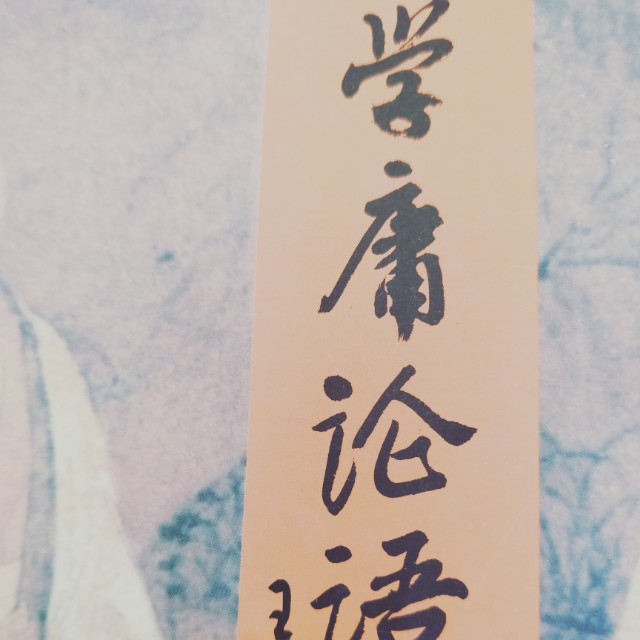 学庸论语